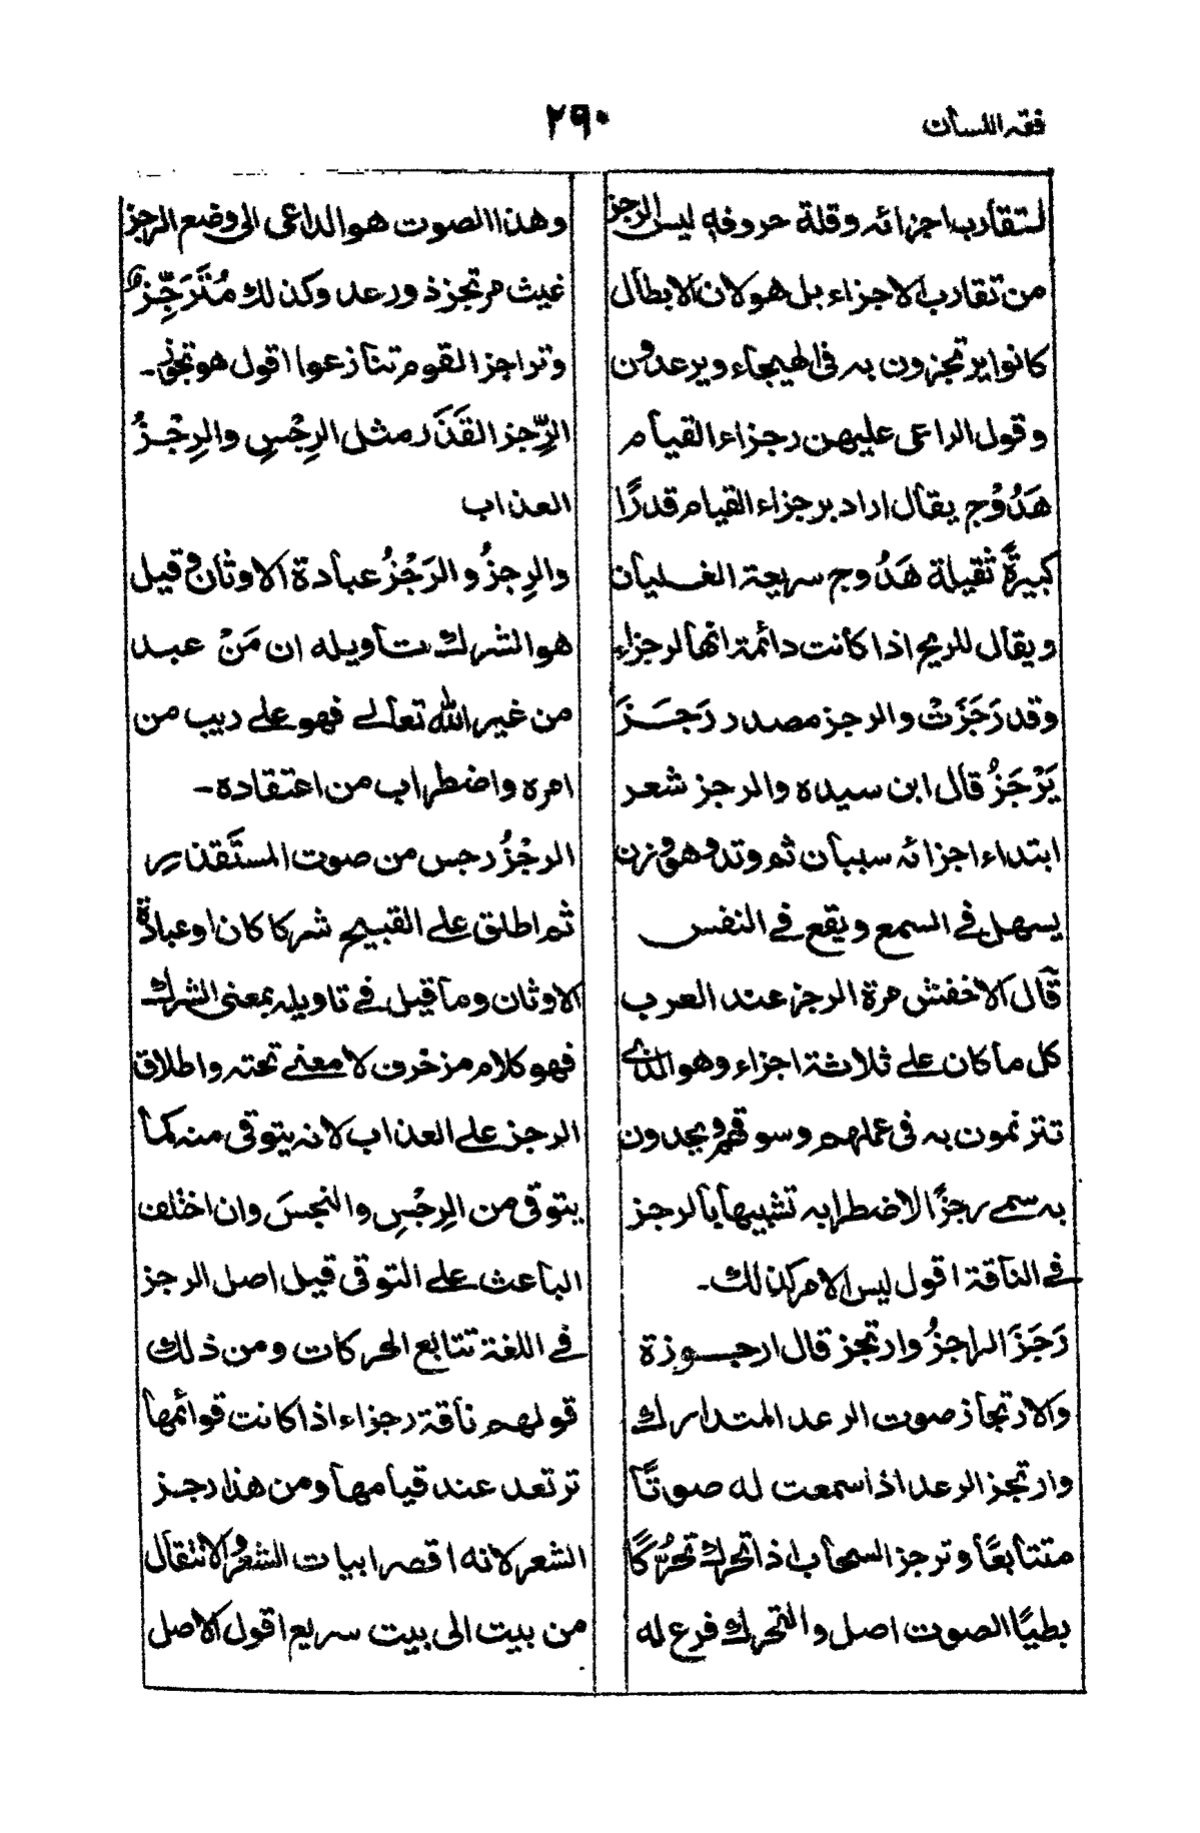 فقه اللسان
۲۹۰
لتقارب اجزائه وقلة حروفه ليس الرجز
من تقارب الاجزاء بل هو لان الابطال
كانوا يرتجزون به فى الهيجاء ويرعدون
وقول الراعى عليهن رجزاء القيام
هَدُوْج يقال اراد برجزاء القيام قدرًا
كبيرةً ثقيلة هَدُوج سريعة الغليان
ويقال للريح اذا كانت دائمة انها لرجزاء
وقد رَجَزَتْ والرجز مصدر رَجَزَ
يَرْجَزُ قال ابن سيده والرجز شعر
ابتداء اجزائه سببان ثم وتد وهو وزن
يسهل فے السمع ويقع فے النفس
قال الاخفش مرة الرجز عند العرب
كل ما كان علے ثلاثة اجزاء وهو الذے
تترنمون به فى عملهم وسوقهم ويحدون
به سمے رجزًا لاضطرابه تشبيها بالرجز
فے الناقة اقول ليس الامر كذلك۔
رَجَزَ الراجزُ وارتجز قال ارجوزة
والارتجاز صوت الرعد المتدارك
وارتجز الرعد اذا سمعت له صوتًا
متتابعًا وترجز السحاب اذا تحرك تحرُّكًا
بطيًا الصوت اصل والتحرك فرع له
وهذا الصوت هو الداعى الى وضع الرجز
غيث مرتجز ذو رعد وكذلك مُتَرَجِّزٌ
وتراجز القوم تنازعوا اقول هو تجوّز۔
الرِّجز القَذَر مثل الرِجْسِ والرِجْزُ
العذاب
والرِجزُ والرَجْزُ عبادة الاوثان وقيل
هو الشرك تاويله ان مَنْ عبد
من غير الله تعالے فهو علے ريب من
امره واضطراب من اعتقاده۔
الرجْزُ رجس من صوت المستَقذِر
ثم اطلق علے القبيح شركا كان او عبادة
الاوثان وما قيل فے تاويله بمعنى الشرك
فهو كلام مزخرف لا معنے تحته واطلاق
الرجز علے العذاب لانه يتوقى منه كما
يتوقى من الرِجْسِ والنجسَ وان اختلف
الباعث علے التوقى قيل اصل الرجز
فے اللغة تتابع الحركات ومن ذلك
قولهم ناقة رجزاء اذا كانت قوائمها
ترتعد عند قيامها ومن هذا رجز
الشعر لانه اقصر ابيات الشعر والانتقال
من بيت الى بيت سريع اقول الاصل